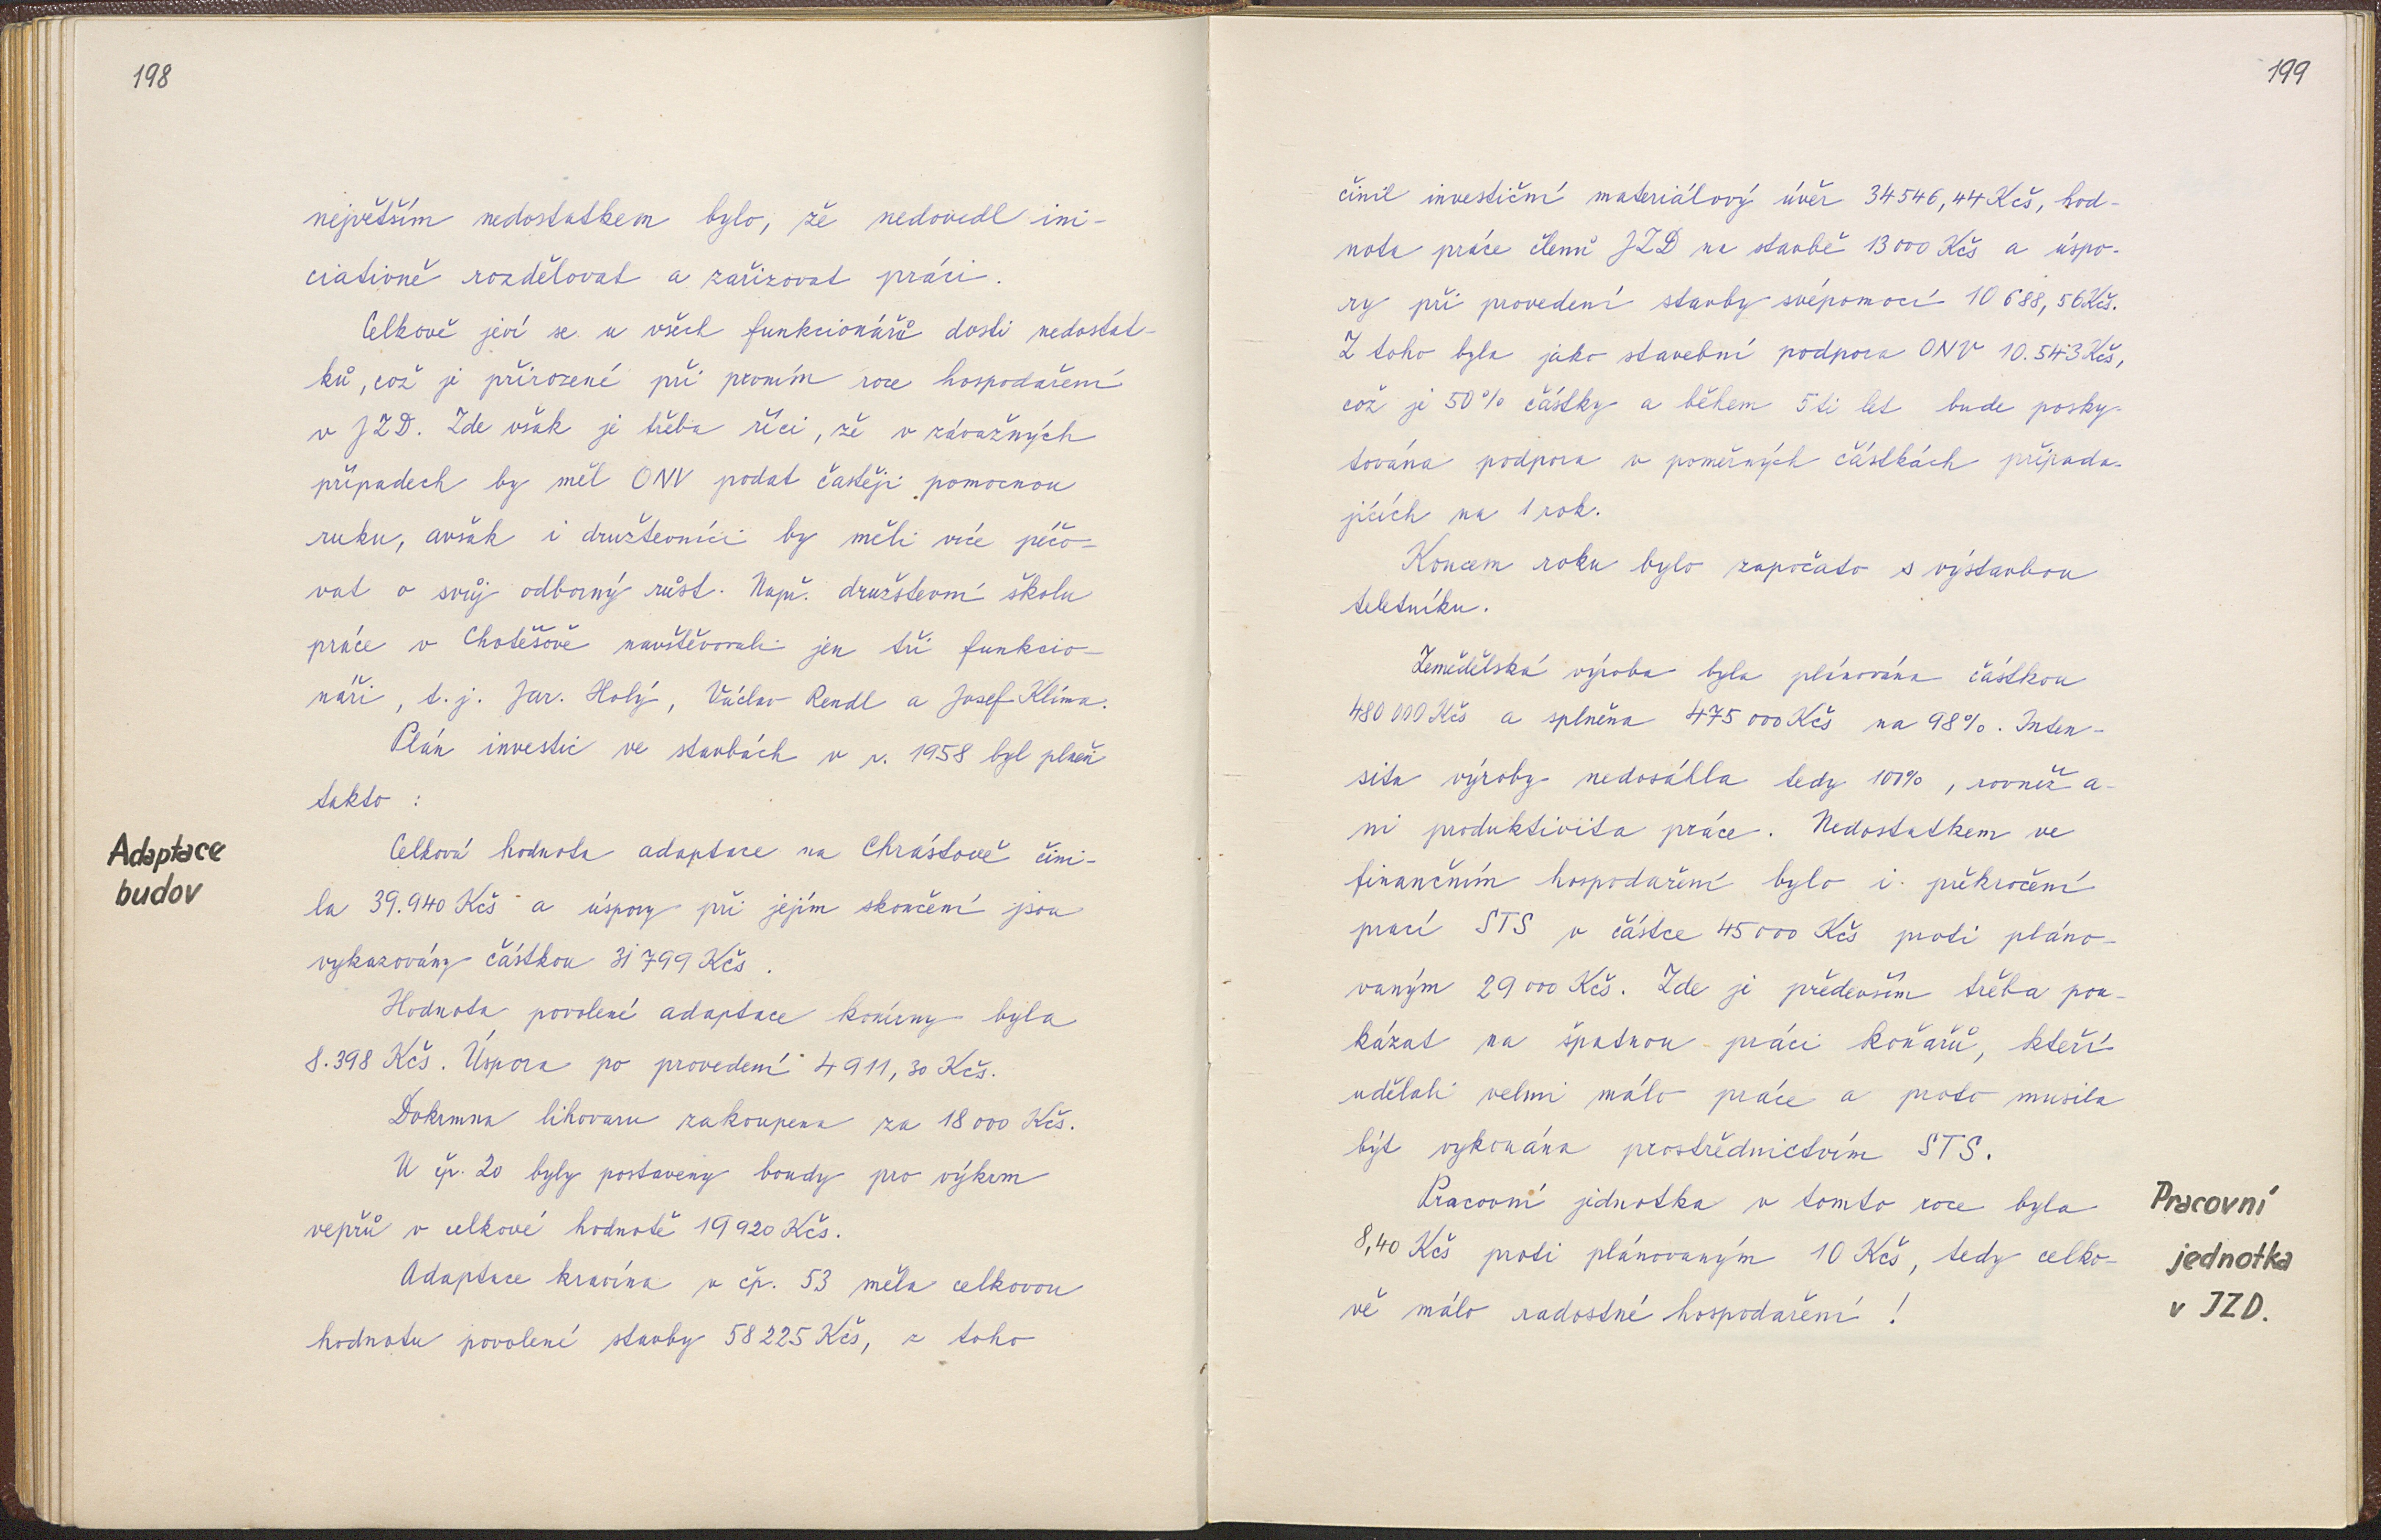 198
největším nedostatkem bylo, že nedovedl ini-
ciativně rozdělovat a zařizovat práci.
Celkově jeví se u všech funkcionářů dosti nedostat-
ků, což je přirozené při prvním roce hospodaření
v JZD. Zde však je třeba říci, že v závažných
případech by měl ONV podat častěji pomocnou
ruku, avšak i družstevníci by měli více péčo-
vat o svůj odborný růst. Např. družstevní školu
práce v Chotěšově navštěvovali jen tři funkcio-
náři, t. j. Jar. Holý, Václav Rendl a Josef Klíma.
Plán investic ve stavbách v r. 1958 byl plněn
takto :
Adaptace
budov
Celková hodnota adaptace na Chrástově čini-
la 39.940 Kčs a úspory při jejím skončení jsou
vykazovány částkou 31799 Kčs.
Hodnota povolené adaptace konírny byla
8.398 Kčs. Úspora po provedení 4911,30 Kčs.
Dokrmna lihovaru zakoupena za 18 000 Kčs.
U čp. 20 byly postaveny boudy pro výkrm
vepřů v celkové hodnotě 19 920 Kčs.
Adaptace kravína v čp. 53 měla celkovou
hodnotu povolení stavby 58 225 Kčs, z toho
199
činil investiční materiálový úvěr 34546,44 Kčs, hod-
nota práce členů JZD na stavbě 13 000 Kčs a úspo-
ry při provedení stavby svépomocí 10 688,56 Kčs.
Z toho byla jako stavební podpora ONV 10.543 Kčs,
což je 50% částky a během 5ti let bude posky-
tována podpora v poměrných částkách připada-
jících na 1 rok.
Koncem roku bylo započato s výstavbou
teletníku.
Zemědělská výroba byla plánována částkou
480 000 Kčs a splněna 475 000 Kčs na 98%. Inten-
sita výroby nedosáhla tedy 100%, rovněž a-
ni produktivita práce. Nedostatkem ve
finančním hospodaření bylo i překročení
prací STS v částce 45 000 Kčs proti pláno-
vaným 29 000 Kčs. Zde je především třeba pou-
kázat na špatnou práci koňařů, kteří
udělali velmi málo práce a proto musila
být vykonána prostřednictvím STS.
Pracovní jednotka v tomto roce byla
8,40 Kčs proti plánovaným 10 Kčs, tedy celko-
vě málo radostné hospodaření !
Pracovní
jednotka
v JZD.